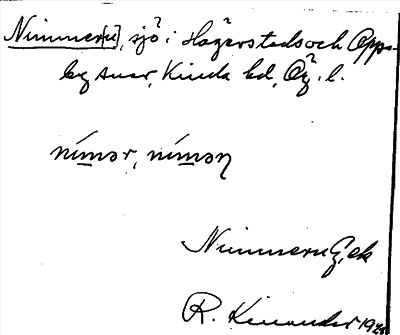 Nimmer[n], sjö i Hägerstads och Opps-
by snar, Kinda hd, Ög. l.
nímər, nímən
Nimmern G, ek
R. Kinander 19